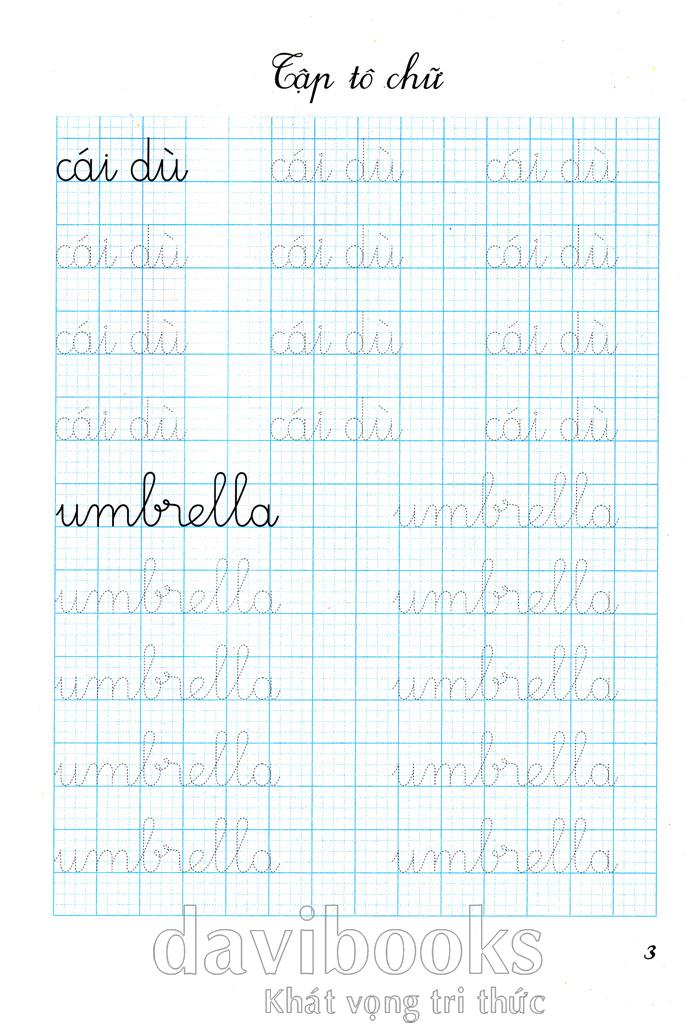 Tập tô chữ
cái dù cái dù cái dù
cái dù cái dù cái dù
cái dù cái dù cái dù
cái dù cái dù cái dù
umbrella umbrella
umbrella umbrella
umbrella umbrella
umbrella umbrella
umbrella umbrella
davibooks
3
Khát vọng tri thức